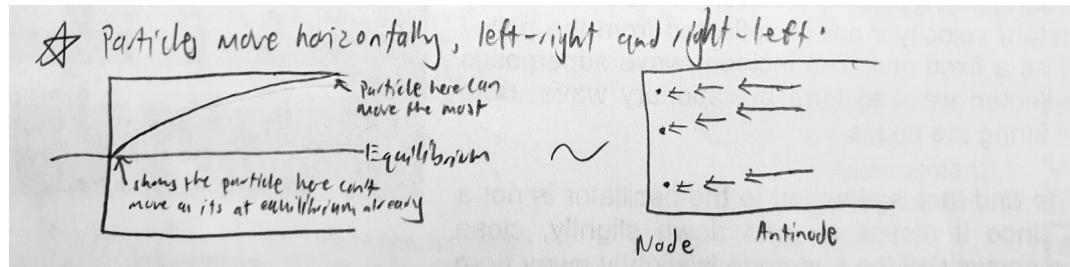 ☆ Particles move horizontally, left-right and right-left.
Particle here can
move the most
Equilibrium
shows the particle here can't
move as its at equilibrium already
~
Node
Antinode